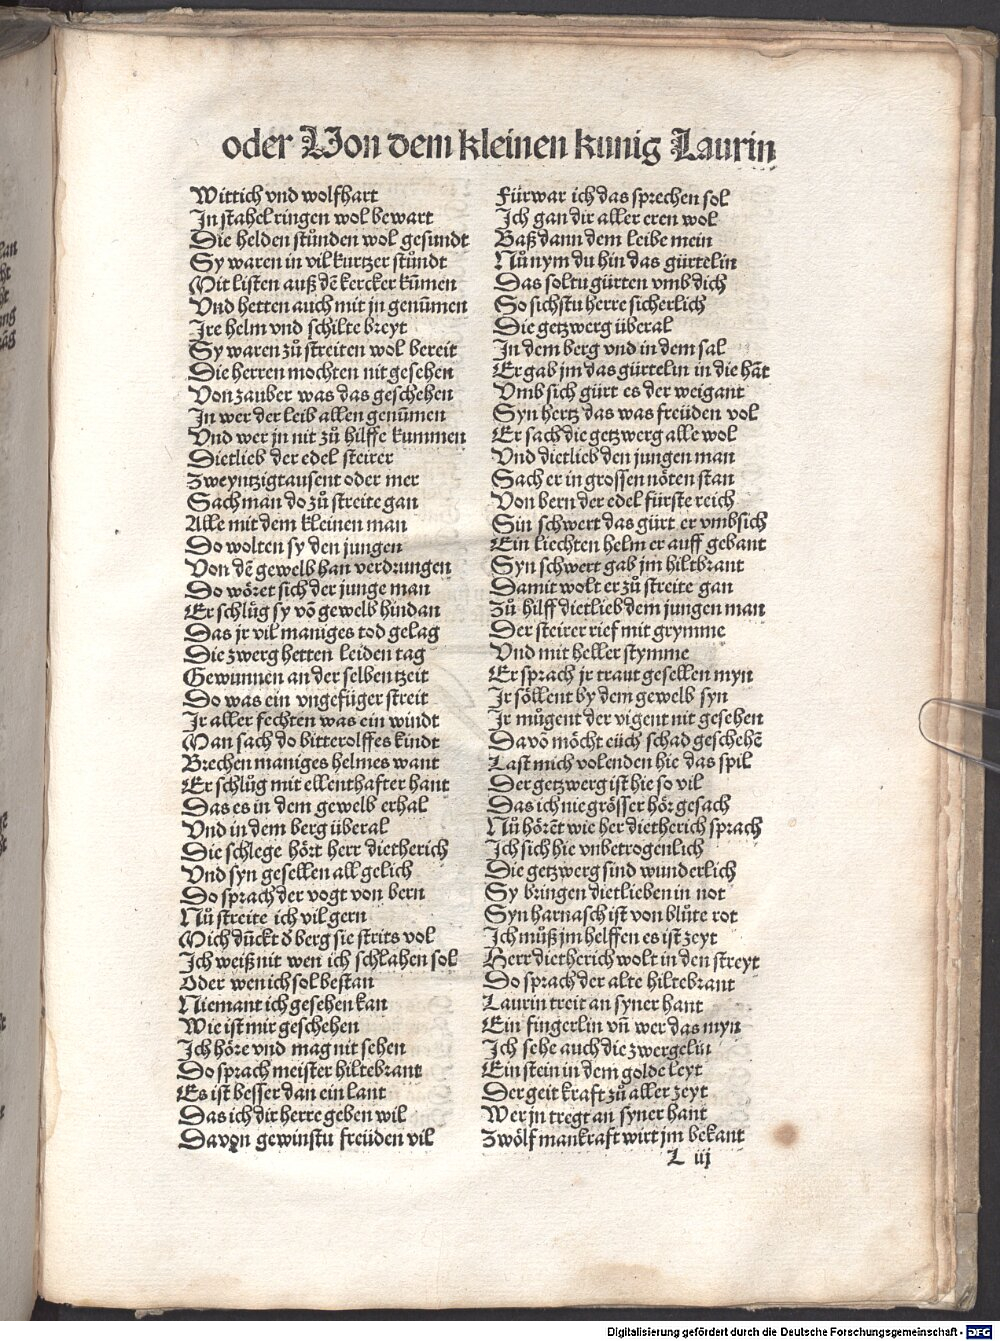 oder Von dem kleinen kunig Laurin
Wittich vnd wolfhart
In stahel ringen wol bewart
Die helden stůnden wol gesundt
Sy waren in vil kurtzer stundt
Mit listen auß dē kercker kūmen
Vnd hetten auch mit jn genūmen
Ire helm vnd schilte breyt
Sy waren zů streiten wol bereit
Die herren mochten nit gesehen
Von zauber was das geschehen
In wer der leib allen genūmen
Vnd wer jn nit zů hilffe kummen
Dietlieb der edel steirer
Zweyntzigtausent oder mer
Sach man do zů streite gan
Alle mit dem kleinen man
Do wolten sy den jungen
Von dē gewelb han verdrungen
Do wöret sich der junge man
Er schlůg sy vō gewelb hindan
Das jr vil maniges tod gelag
Die zwerg hetten leiden tag
Gewunnen an der selben tzeit
Do was ein vngefüger streit
Ir aller fechten was ein windt
Man sach do bitterolffes kindt
Brechen maniges helmes want
Er schlůg mit ellenthafter hant
Das es in dem gewelb erhal
Vnd in dem berg überal
Die schlege hört herr dietherich
Vnd syn gesellen all gelich
Do sprach der vogt von bern
Nů streite ich vil gern
Mich dūckt d̄ berg sie strits vol
Ich weiß nit wen ich schlahen sol
Oder wen ich sol bestan
Niemant ich gesehen kan
Wie ist mir geschehen
Ich höre vnd mag nit sehen
Do sprach meister hiltebrant
Es ist besser dan ein lant
Das ich dir herre geben wil
Davon gewinstu freüden vil
Fürwar ich das sprechen sol
Ich gan dir aller eren wol
Baß dann dem leibe mein
Nů nym du hin das gürtelin
Das soltu gürten vmb dich
So sichstu herre sicherlich
Die getzwerg überal
In dem berg vnd in dem sal
Er gab jm das gürtelin in die hāt
Vmb sich gürt es der weigant
Syn hertz das was freüden vol
Er sach die getzwerg alle wol
Vnd dietlieb den jungen man
Sach er in grossen nöten stan
Von bern der edel fürste reich
Sin schwert das gürt er vmb sich
Ein liechten helm er auff gebant
Syn schwert gab jm hiltbrant
Damit wolt er zů streite gan
Zů hilff dietlieb dem jungen man
Der steirer rief mit grymme
Vnd mit heller stymme
Er sprach jr traut gesellen myn
Ir söllent by dem gewelb syn
Ir můgent der vigent nit gesehen
Davō möcht eüch schad geschehē
Last mich volenden hie das spil
Der getzwerg ist hie so vil
Das ich nie grösser hör gesach
Nů hörēt wie her dietherich sprach
Ich sich hie vnbetrogenlich
Die getzwerg sind wunderlich
Sy bringen dietlieben in not
Syn harnasch ist von blůte rot
Ich můß jm helffen es ist zeyt
Herr dietherich wolt in den streyt
Do sprach der alte hiltebrant
Laurin treit an syner hant
Ein fingerlin vn̄ wer das myn
Ich sehe auch die zwergelin
Ein stein in dem golde leyt
Der geit kraft zů aller zeyt
Wer jn tregt an syner hant
Zwölf man kraft wirt jm bekant
L iij
Digitalisierung gefördert durch die Deutsche Forschungsgemeinschaft - DFG